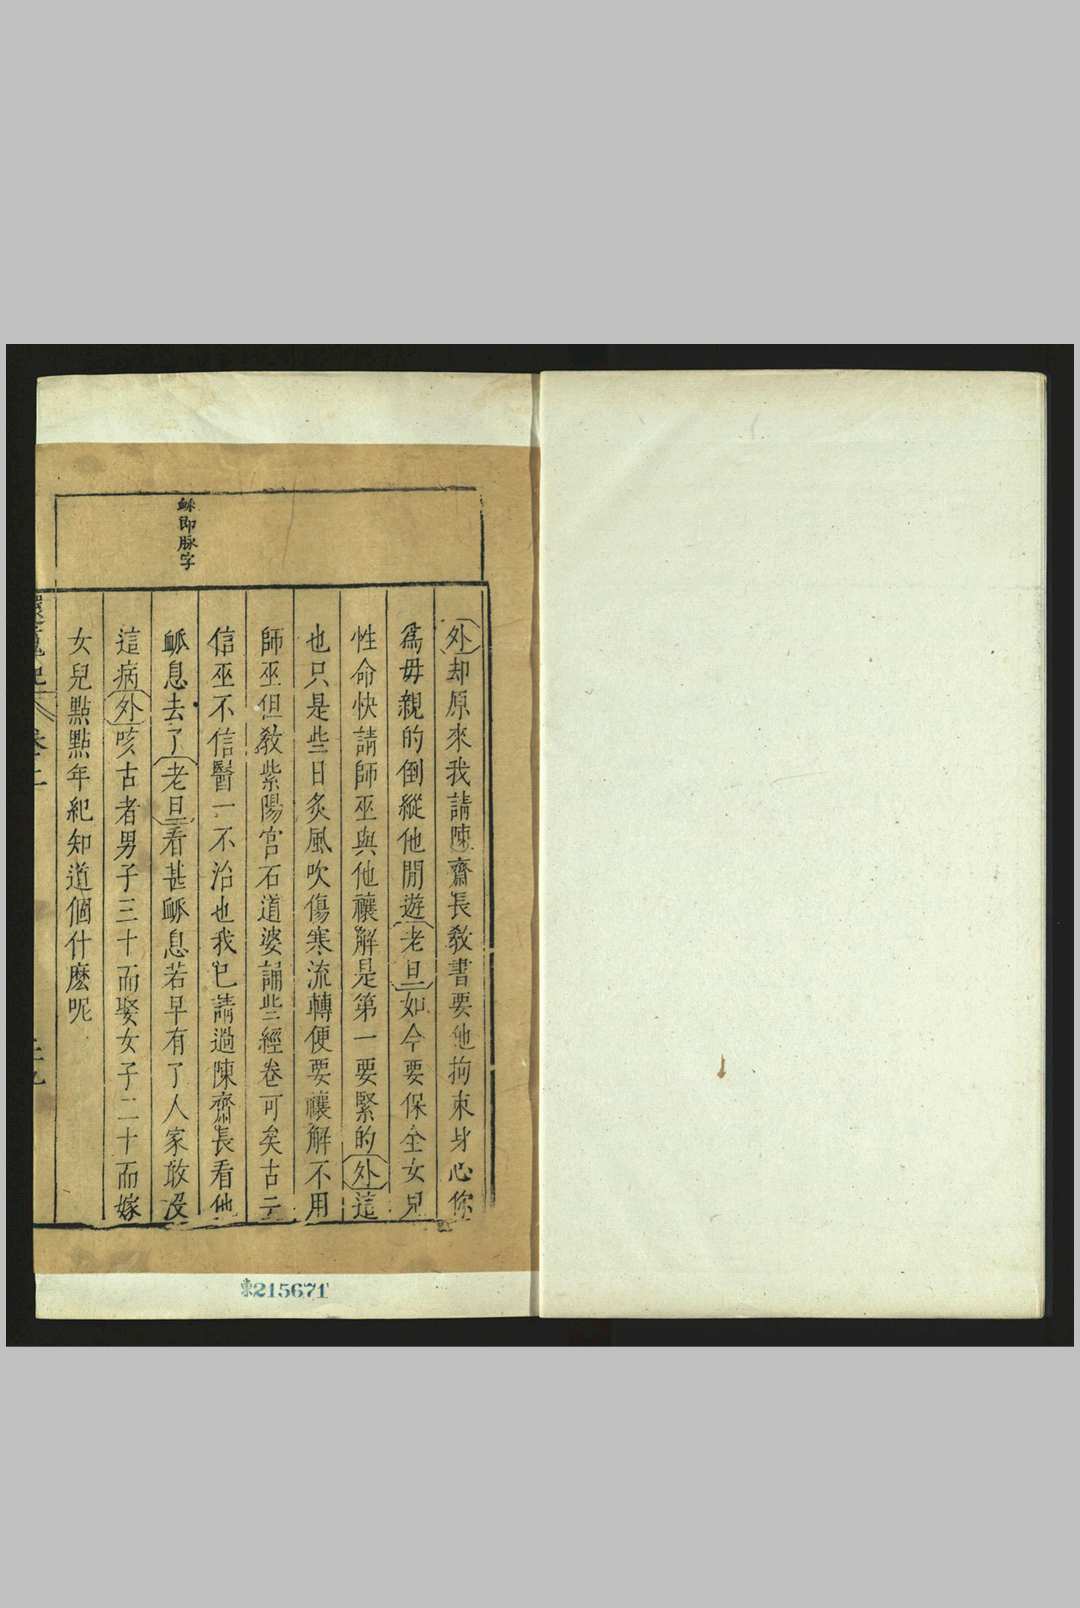 衇即脉字
外却原來我請陳齋長教書要他拘束身心你
爲毋親的倒縱他閒遊老旦如今要保全女兒
性命快請師巫與他禳解是第一要緊的外這
也只是些日炙風吹傷寒流轉便要禳解不用
師巫但教紫陽宮石道婆誦些經卷可矣古云
信巫不信醫一不治也我已請過陳齋長看他
衇息去了老旦看甚衇息若早有了人家敢没
這病外咳古者男子三十而娶女子二十而嫁
女兒點點年紀知道個什麽呢
東215671